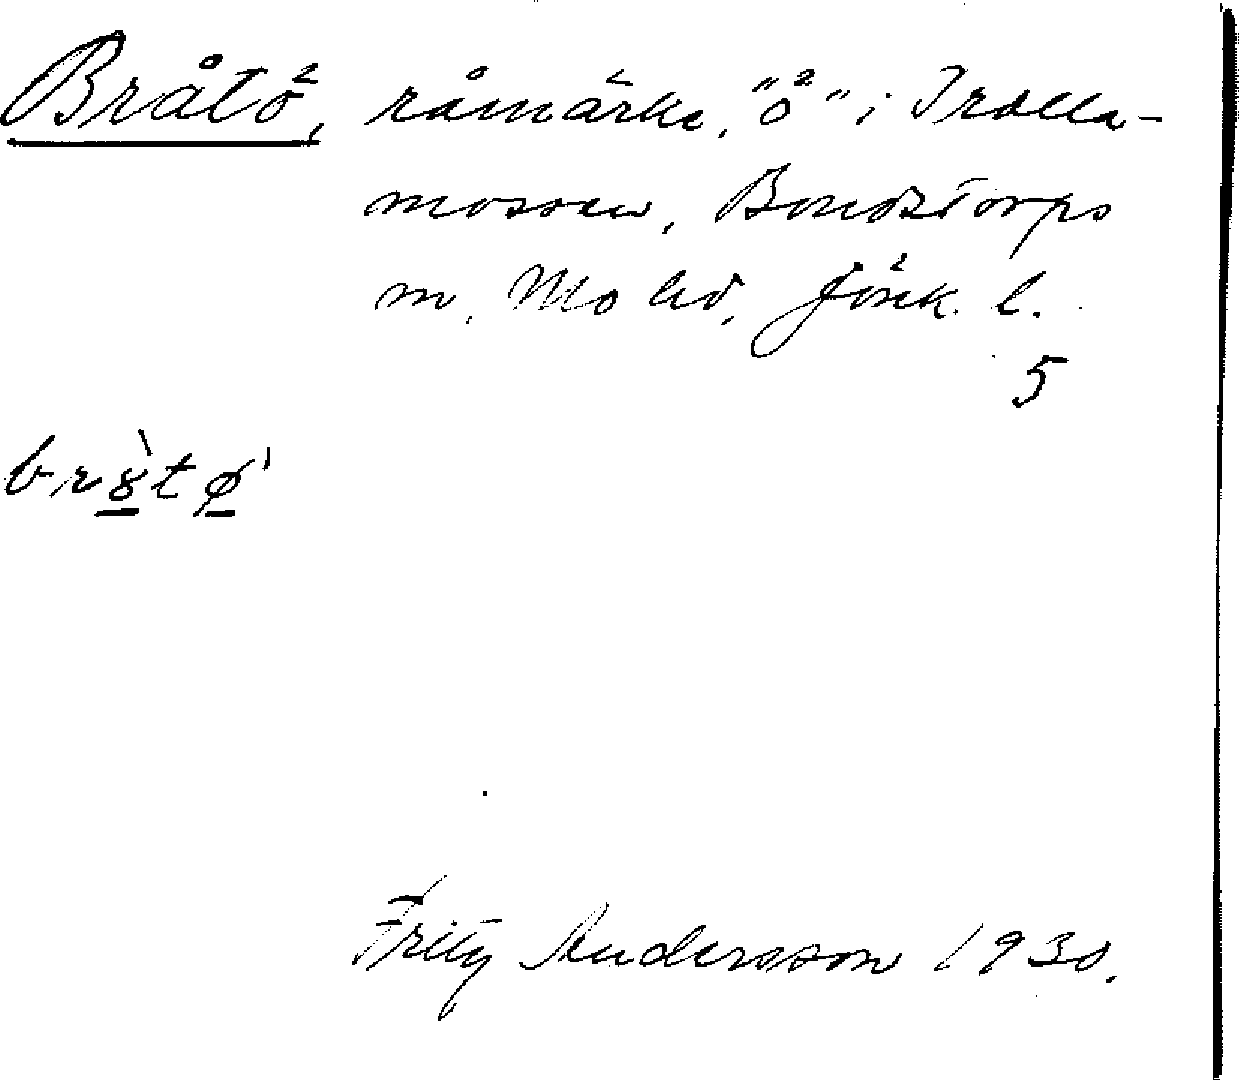 Bråtö, råmärke, "ö" i Trolla-
mossen, Bondstorps
sn, Mo hd, Jönk. l.
5
br8̀tø'
Fritz Andersson 1930.